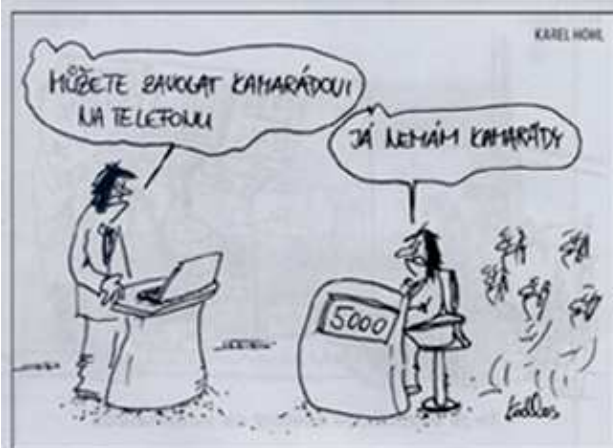 KAREL HOHL
MŮŽETE ZAVOLAT KAMARÁDOVI
NA TELEFONU
JÁ NEMÁM KAMARÁDY
5000